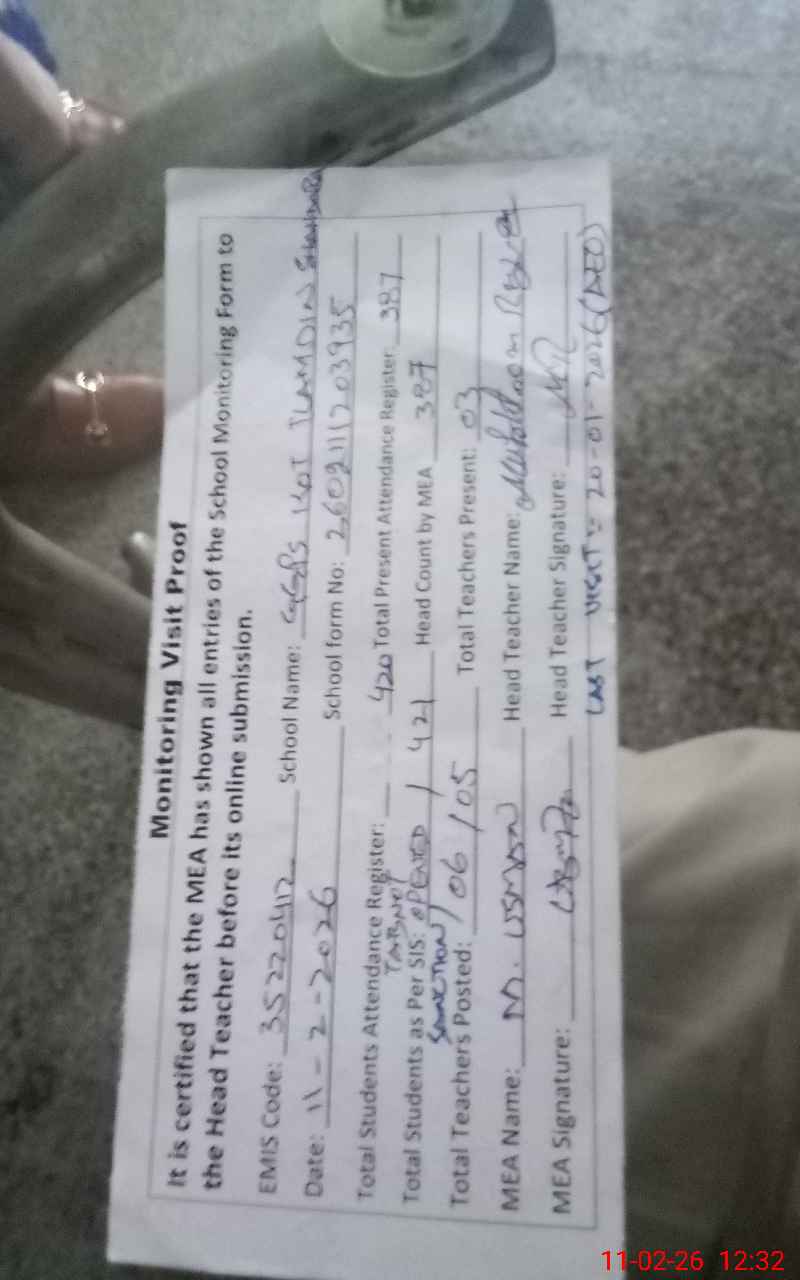 Monitoring Visit Proof
It is certified that the MEA has shown all entries of the School Monitoring Form to
the Head Teacher before its online submission.
EMIS Code: 35220412 School Name: GGPS KOT
Date: 11-2-2026 School form No: 2602111203935
Total Students Attendance Register: 420 Total Present Attendance Register: 387
TAB NOT
Total Students as Per SIS: OPENED / 421 Head Count by MEA 387
SANCTION
Total Teachers Posted: / 06 / 05 Total Teachers Present: 03
MEA Name: M. USMAN Head Teacher Name:
MEA Signature: Head Teacher Signature:
LAST VISIT:- 20-01-2026 (AEO)
11-02-26 12:32